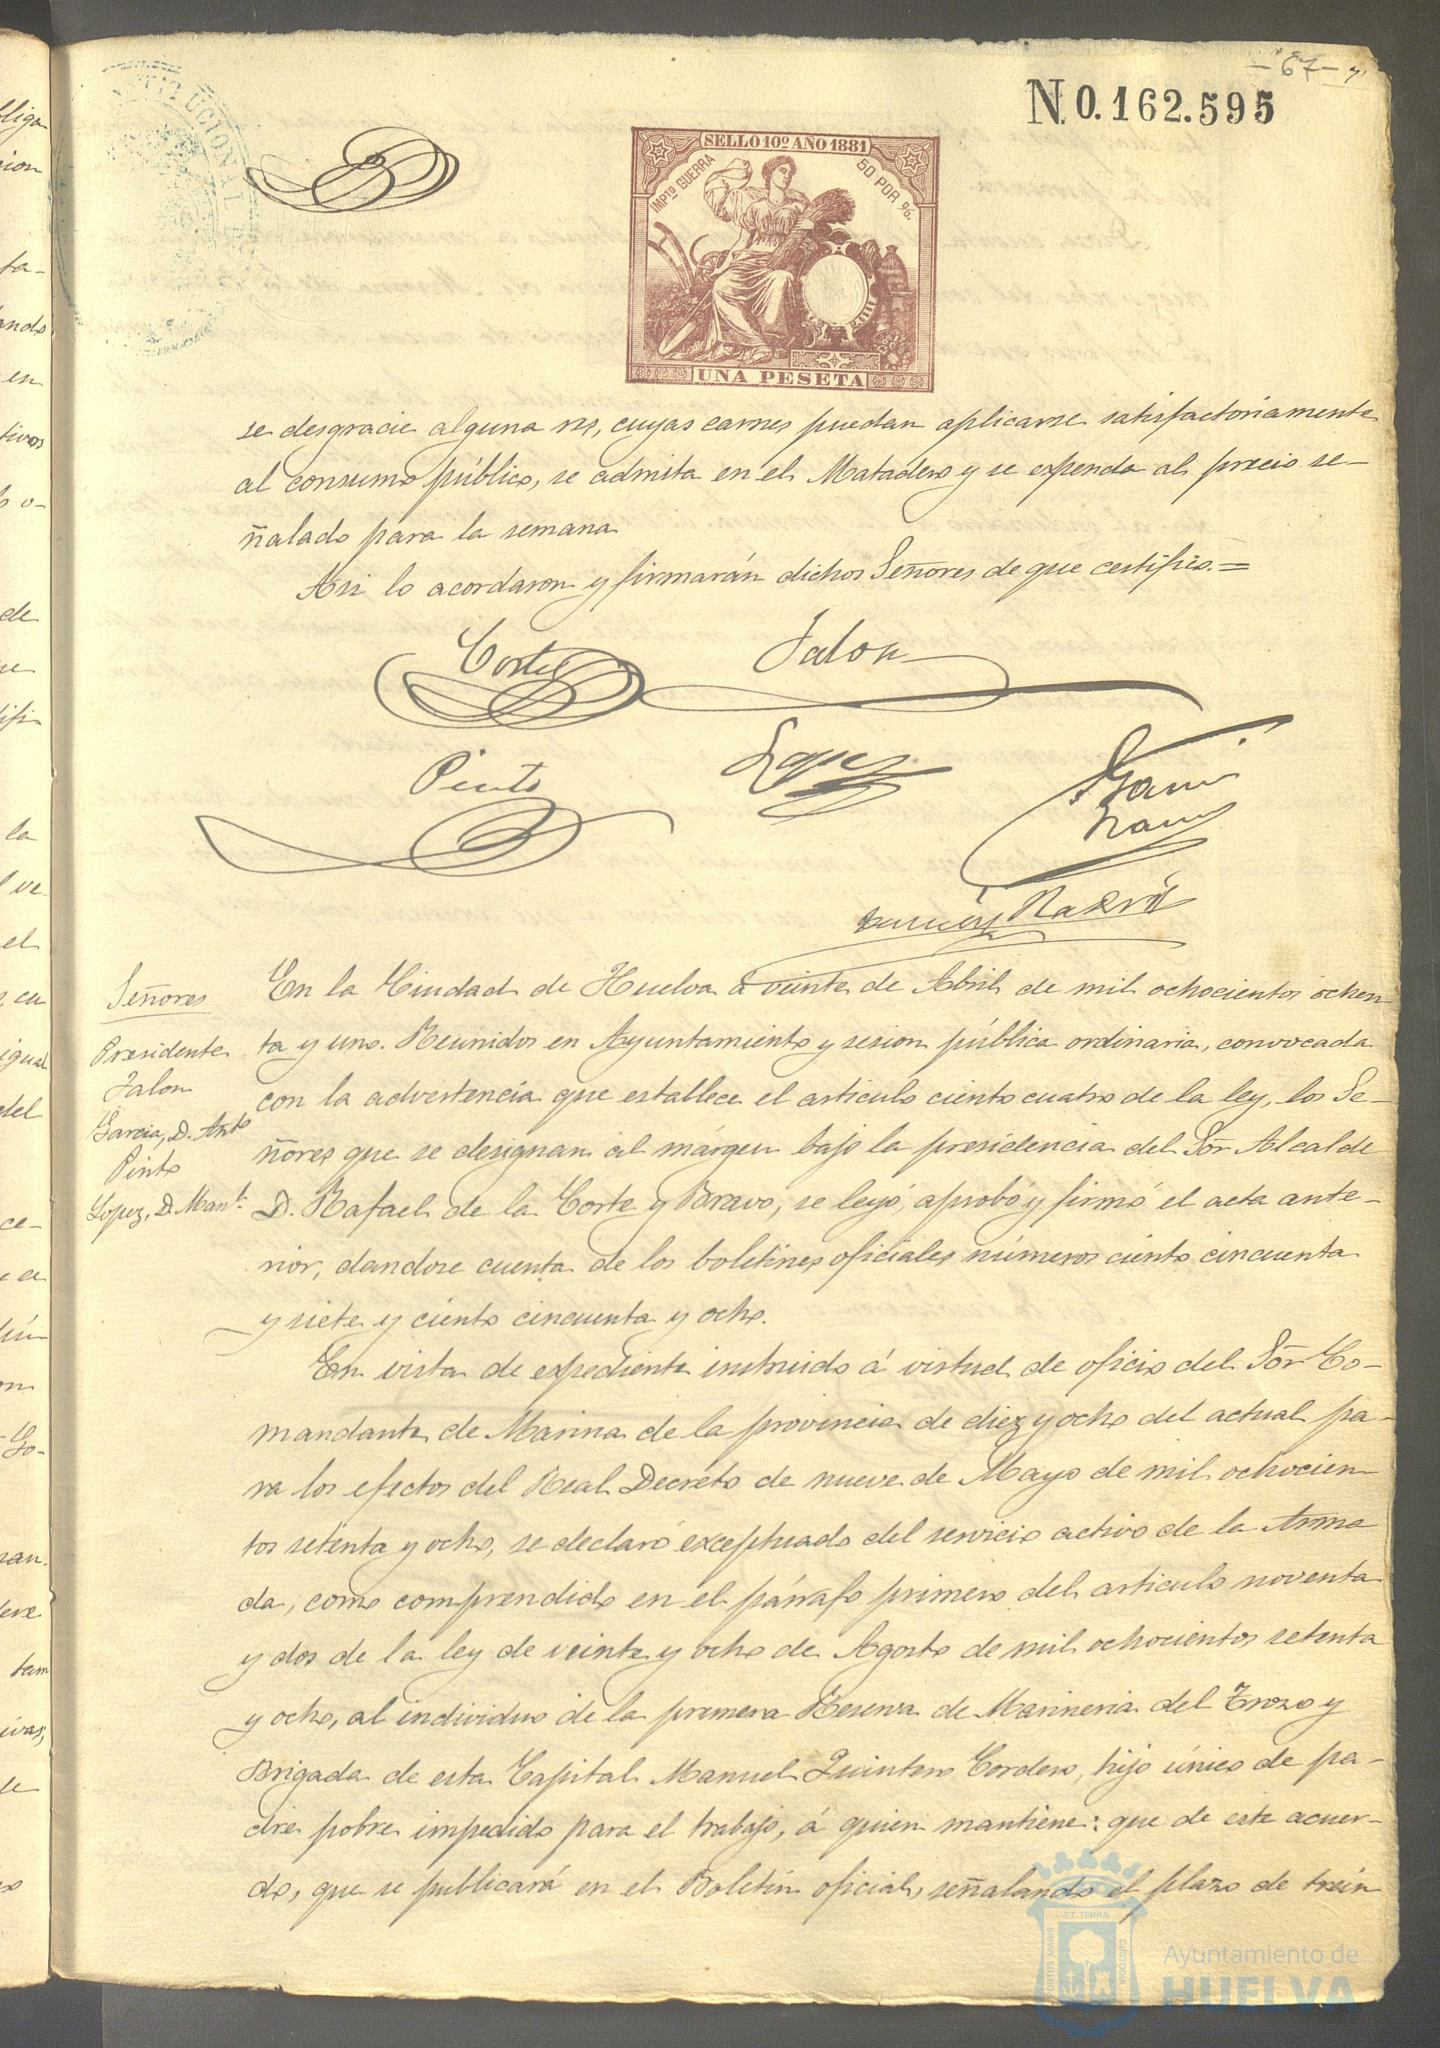 -67-
N.0.162.595
SELLO 10º AÑO 1881
IMPTO GUERRA
50 POR %.
UNA PESETA
se desgracie alguna res, cuyas carnes puedan aplicarse satisfactoriamente
al consumo público, se admita en el Matadero y se expenda al precio se-
ñalado para la semana
Asi lo acordaron y firmarán dichos Señores de que certifico.=
Corte
Jalon
Pinto
Lopez
Garcia
Señores
Presidente
Jalon
Garcia, D. Antº
Pinto
Lopez, D. Manl.
En la Ciudad de Huelva á veinte de Abril de mil ochocientos ochen
ta y uno. Reunidos en Ayuntamiento y sesion pública ordinaria, convocada
con la advertencia que establece el articulo ciento cuatro de la ley, los Se-
ñores que se designan al márgen bajo la presidencia del Sõr Alcalde
D. Rafael de la Corte y Bravo, se leyó, aprobó y firmó el acta ante-
rior, dandose cuenta de los boletines oficiales números ciento cincuenta
y siete y ciento cincuenta y ocho.
En vista de expediente instruido á virtud de oficio del Sõr Co-
mandante de Marina de la provincia de diez y ocho del actual pa-
ra los efectos del Real Decreto de nueve de Mayo de mil ochocien
tos setenta y ocho, se declaró exceptuado del servicio activo de la Arma
da, como comprendido en el párrafo primero del articulo noventa
y dos de la ley de veinte y ocho de Agosto de mil ochocientos setenta
y ocho, al individuo de la primera Reserva de Marineria del Trozo y
Brigada de esta Capital Manuel Quintero Cordero, hijo único de pa-
dre pobre impedido para el trabajo, á quien mantiene: que de este acuer-
do, que se publicará en el Boletin oficial, señalando el plazo de trein
Ayuntamiento de
HUELVA